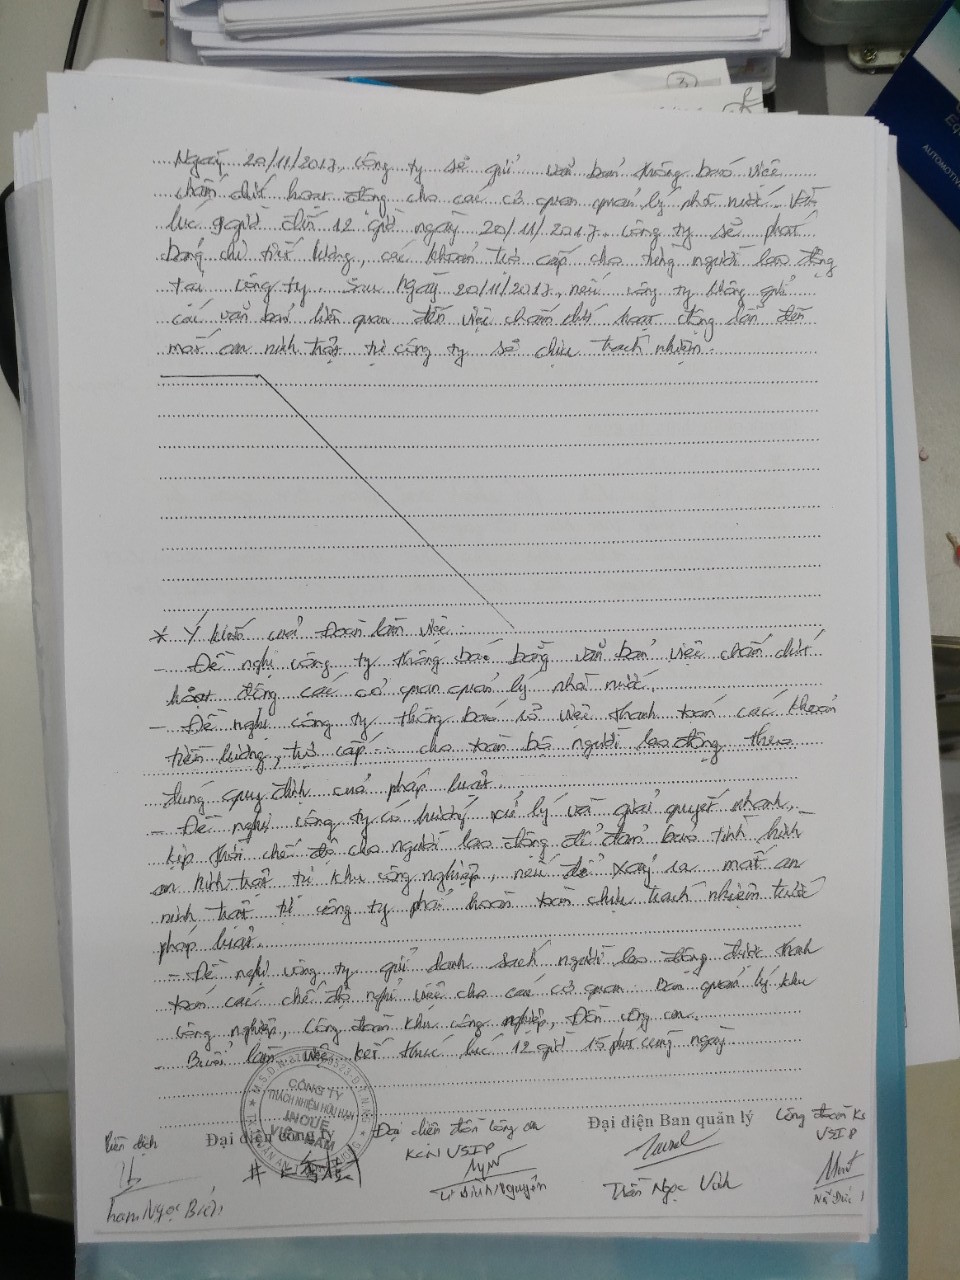 3
Ngày 20/11/2017, công ty sẽ gửi văn bản thông báo việc
chấm dứt hoạt động cho các cơ quan quản lý nhà nước. Vào
lúc 9 giờ đến 12 giờ ngày 20/11/2017. công ty sẽ phát
bảng chi tiết lương, các khoản trợ cấp cho từng người lao động
tại công ty. Sau ngày 20/11/2017, nếu công ty không gửi
các văn bản liên quan đến việc chấm dứt hoạt động dẫn đến
mất an ninh trật tự công ty sẽ chịu trách nhiệm.
* Ý kiến của Đoàn làm việc:
- Đề nghị công ty thông báo bằng văn bản việc chấm dứt
hoạt động các cơ quan quản lý nhà nước.
- Đề nghị công ty thông báo rõ việc thanh toán các khoản
tiền lương, trợ cấp... cho toàn bộ người lao động theo
đúng quy định của pháp luật.
- Đề nghị công ty có hướng xử lý và giải quyết nhanh,
kịp thời chế độ cho người lao động để đảm bảo tình hình
an ninh trật tự khu công nghiệp, nếu để xảy ra mất an
ninh trật tự công ty phải hoàn toàn chịu trách nhiệm trước
pháp luật.
- Đề nghị công ty gửi danh sách người lao động được thanh
toán các chế độ nghỉ việc cho các cơ quan: Ban quản lý khu
công nghiệp, Công đoàn khu công nghiệp, Đồn công an.
- Buổi làm việc kết thúc lúc 12 giờ 15 phút cùng ngày.
CÔNG TY
TRÁCH NHIỆM HỮU HẠN
INOUE
VIỆT NAM
Phiên dịch
Đại diện Công ty
Đại diện đồn Công an
KCN VSIP
Đại diện Ban quản lý
Công đoàn KCN
VSIP
井上
Trần Ngọc Vinh
Ngọc Biên
AUTOMOTIVE